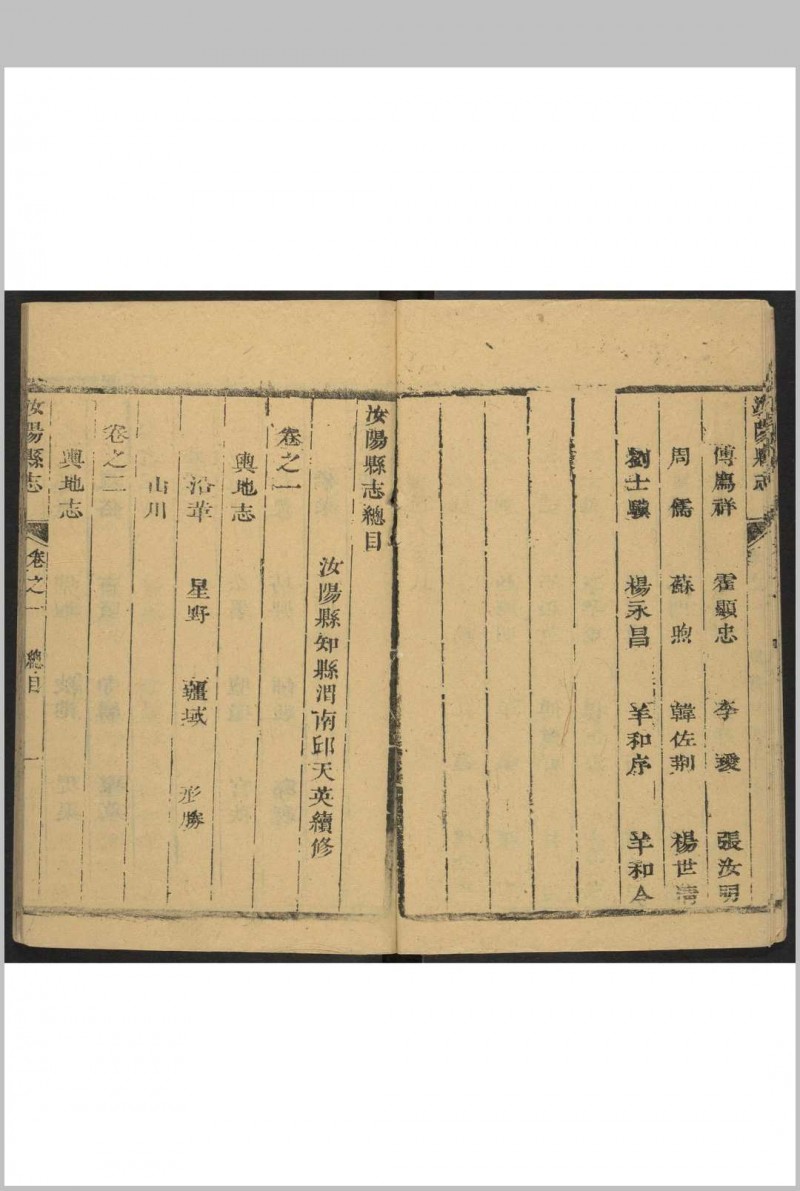 汝陽縣志
傅鳫祥 霍顯忠 李璦 張汝明
周儒 蘇煦 韓佐荆 楊世濤
劉士驥 楊永昌 羊和序 羊和令
汝陽縣志總目
汝陽縣知縣渭南邱天英續修
卷之一
輿地志
沿革 星野 疆域 形勝
山川
卷之二
輿地志
汝陽縣志 卷之一 總目 一